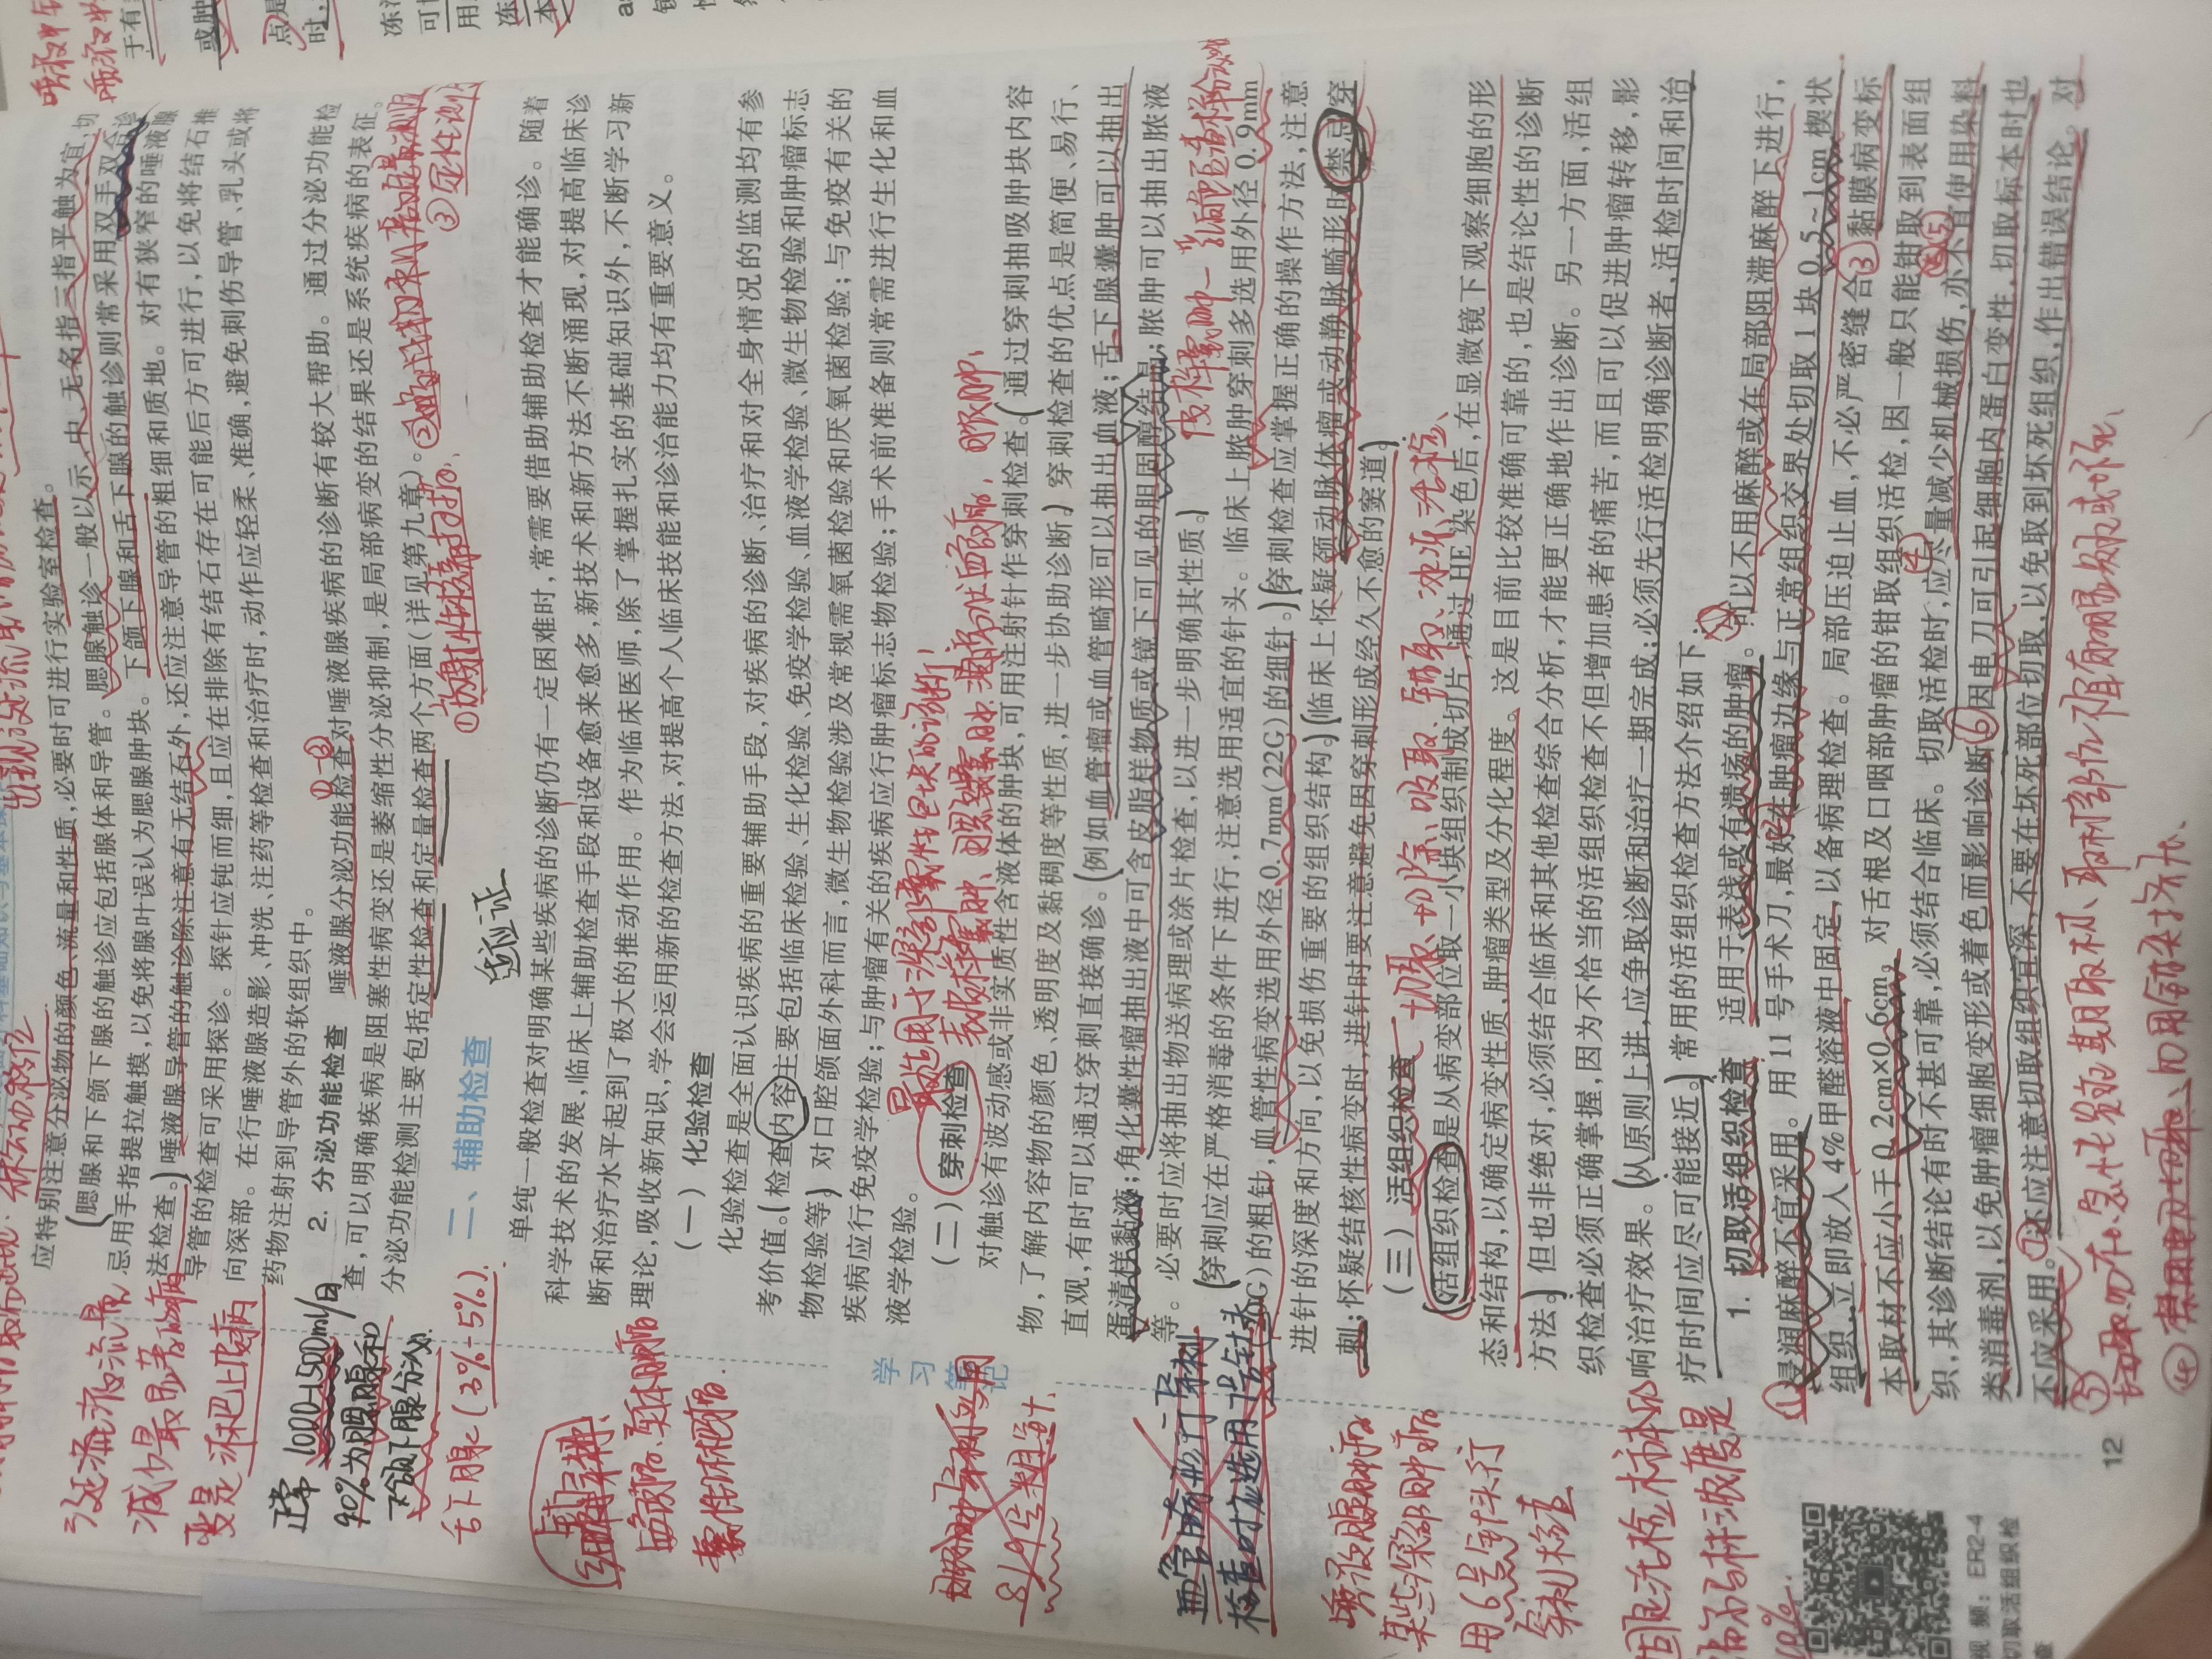 应特别注意分泌物的颜色、流量和性质,必要时可进行实验室检查。
腮腺和下颌下腺的触诊应包括腺体和导管。腮腺触诊一般以示、中、无名指三指平触为宜,切
忌用手指提拉触摸,以免将腺叶误认为腮腺肿块。下颌下腺和舌下腺的触诊则常采用双手双合诊
法检查。唾液腺导管的触诊除注意有无结石外,还应注意导管的粗细和质地。对有狭窄的唾液腺
导管的检查可采用探诊。探针应钝而细,且应在排除有结石存在可能后方可进行,以免将结石推
向深部。在行唾液腺造影、冲洗、注药等检查和治疗时,动作应轻柔、准确,避免刺伤导管、乳头或将
药物注射到导管外的软组织中。
2. 分泌功能检查 唾液腺分泌功能检查对唾液腺疾病的诊断有较大帮助。通过分泌功能检
查,可以明确疾病是阻塞性病变还是萎缩性分泌抑制,是局部病变的结果还是系统疾病的表征。
分泌功能检测主要包括定性检查和定量检查两个方面(详见第九章)。
③定性测定
①放射性核素扫描.
二、辅助检查
单纯一般检查对明确某些疾病的诊断仍有一定困难时,常需要借助辅助检查才能确诊。随着
科学技术的发展,临床上辅助检查手段和设备愈来愈多,新技术和新方法不断涌现,对提高临床诊
断和治疗水平起到了极大的推动作用。作为临床医师,除了掌握扎实的基础知识外,不断学习新
理论,吸收新知识,学会运用新的检查方法,对提高个人临床技能和诊治能力均有重要意义。
(一)化验检查
化验检查是全面认识疾病的重要辅助手段,对疾病的诊断、治疗和对全身情况的监测均有参
考价值。检查内容主要包括临床检验、生化检验、免疫学检验、血液学检验、微生物检验和肿瘤标志
物检验等。对口腔颌面外科而言,微生物检验涉及常规需氧菌检验和厌氧菌检验;与免疫有关的
疾病应行免疫学检验;与肿瘤有关的疾病应行肿瘤标志物检验;手术前准备则常需进行生化和血
液学检验。
最适用于深部囊性包块的诊断:
(二)穿刺检查
对触诊有波动感或非实质性含液体的肿块,可用注射针作穿刺检查。通过穿刺抽吸肿块内容
物,了解内容物的颜色、透明度及黏稠度等性质,进一步协助诊断。穿刺检查的优点是简便、易行、
直观,有时可以通过穿刺直接确诊。例如血管瘤或血管畸形可以抽出血液;舌下腺囊肿可以抽出
蛋清样黏液;角化囊性瘤抽出液中可含皮脂样物质或镜下可见的胆固醇结晶;脓肿可以抽出脓液
等。必要时应将抽出物送病理或涂片检查,以进一步明确其性质。
穿刺应在严格消毒的条件下进行,注意选用适宜的针头。临床上脓肿穿刺多选用外径 0.9mm
G)的粗针,血管性病变选用外径 0.7mm(22G)的细针。穿刺检查应掌握正确的操作方法,注意
进针的深度和方向,以免损伤重要的组织结构。临床上怀疑颈动脉体瘤或动静脉畸形时禁忌穿
刺;怀疑结核性病变时,进针时要注意避免因穿刺形成经久不愈的窦道。
(三)活组织检查
切取、切除、吸取、钳取、冰冻活检、
活组织检查是从病变部位取一小块组织制成切片,通过 HE 染色后,在显微镜下观察细胞的形
态和结构,以确定病变性质、肿瘤类型及分化程度。这是目前比较准确可靠的,也是结论性的诊断
方法。但也非绝对,必须结合临床和其他检查综合分析,才能更正确地作出诊断。另一方面,活组
织检查必须正确掌握,因为不恰当的活组织检查不但增加患者的痛苦,而且可以促进肿瘤转移,影
响治疗效果。从原则上讲,应争取诊断和治疗一期完成;必须先行活检明确诊断者,活检时间和治
疗时间应尽可能接近。常用的活组织检查方法介绍如下。
1. 切取活组织检查 适用于表浅或有溃疡的肿瘤。可以不用麻醉或在局部阻滞麻醉下进行,
浸润麻醉不宜采用。用 11 号手术刀,最好在肿瘤边缘与正常组织交界处切取 1 块 0.5~1cm 楔状
组织,立即放入 4%甲醛溶液中固定,以备病理检查。局部压迫止血,不必严密缝合。黏膜病变标
本取材不应小于 0.2cm×0.6cm。对舌根及口咽部肿瘤的钳取组织活检,因一般只能钳取到表面组
织,其诊断结论有时不甚可靠,必须结合临床。切取活检时,应尽量减少机械损伤,亦不宜使用染料
类消毒剂,以免肿瘤细胞变形或着色而影响诊断。因电刀可引起细胞内蛋白变性,切取标本时也
不应采用。还应注意切取组织宜深,不要在坏死部位切取,以免取到坏死组织,作出错误结论。对
切取勿在急性炎症期取材、取材部位不宜有
学习笔记
唾液流量
减少最显著的病
变是淋巴上皮病
正常 1000-1500ml/日
90%为腮腺和
下颌下腺分泌.
舌下腺(3%-5%).
血管畸形行穿刺
检查时应选用7号针头
唾液腺肿瘤及
某些深部肿瘤
用6号针头行
穿刺检查
固定活检标本的
福尔马林浓度是
10%.
12
视频:ER2-4
切取活组织检
查